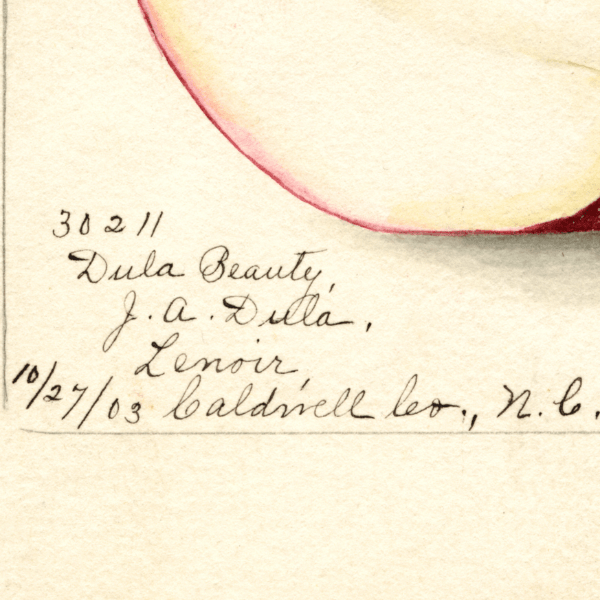 30211
Dula Beauty,
J. A. Dula,
Lenoir,
10/27/03 Caldwell Co., N. C.